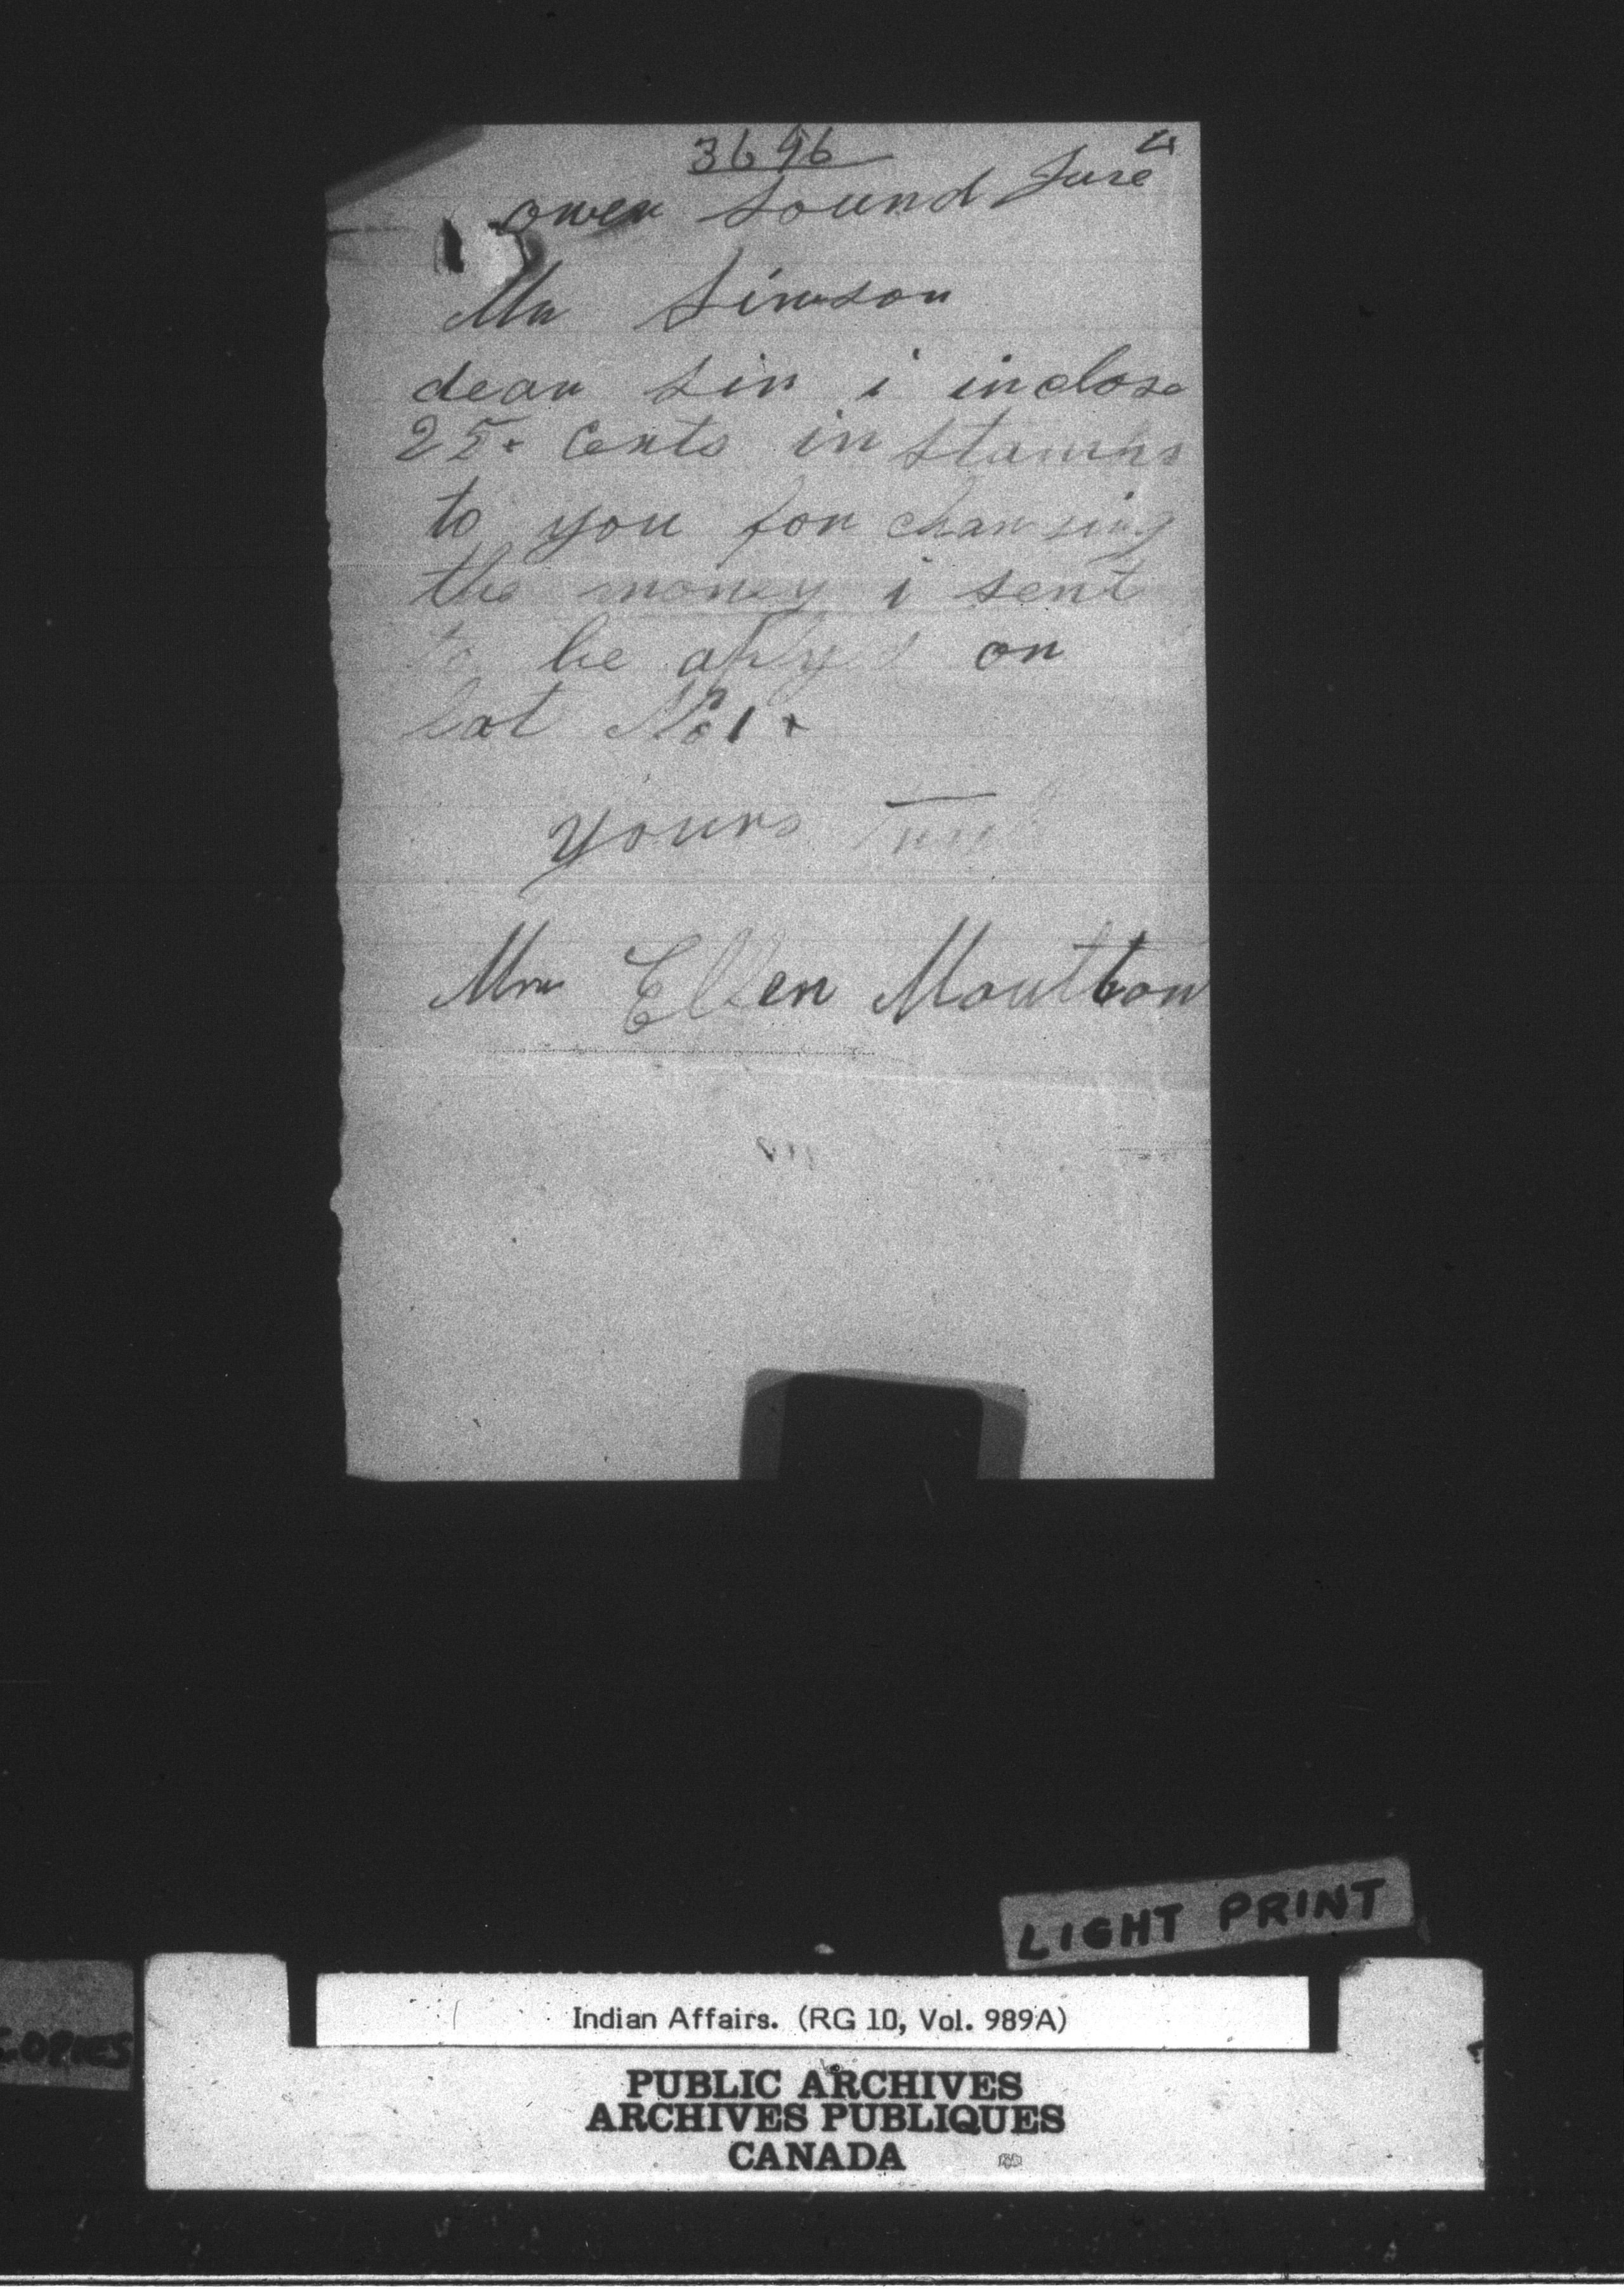 3696
owen Sound June 4
Mr Simson
dear sir i inclose
25 cents in stamps
to you for chansing
the money i sent
to be aplyed on
lot No 1
yours Truly
Mrs Ellen Moultton
LIGHT PRINT
COPIES
Indian Affairs. (RG 10, Vol. 989A)
PUBLIC ARCHIVES
ARCHIVES PUBLIQUES
CANADA